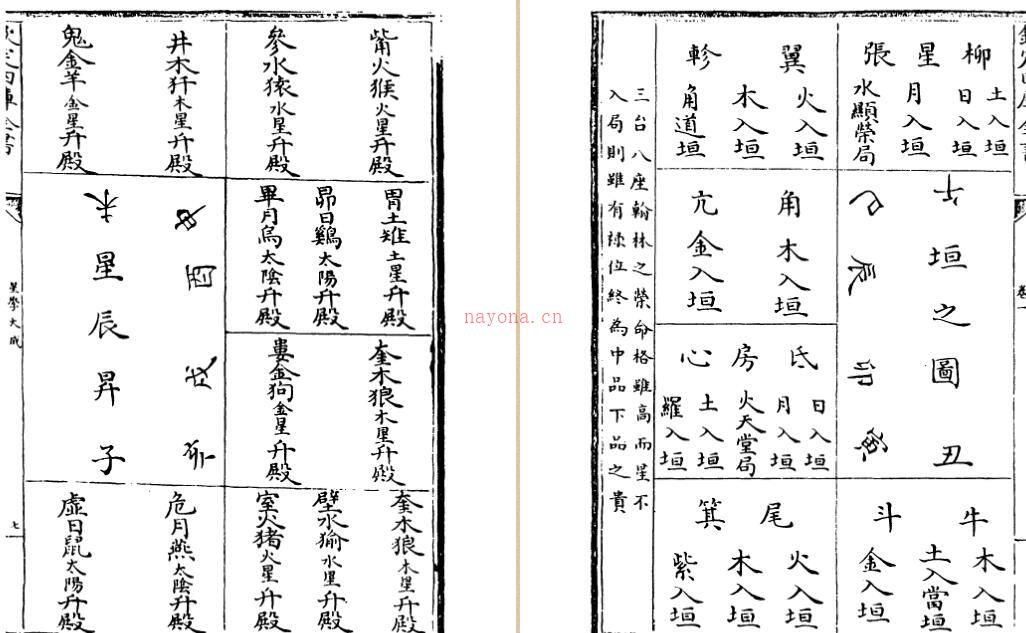 柳 星 張
土入垣
日入垣
月入垣
水顯榮局
翼 軫
火入垣
木入垣
角道垣
角 亢
木入垣
金入垣
氐 房 心
日入垣
月入垣
火天堂局
土入垣
羅入垣
尾 箕
火入垣
木入垣
紫入垣
牛 斗
木入垣
土入當垣
金入垣
午 垣之圖 丑
巳 辰 卯 寅
三台八座翰林之榮命格雖高而星不
入局則雖有祿位終為中品下品之貴
觜火猴火星升殿
參水猿水星升殿
井木犴木星升殿
鬼金羊金星升殿
胃土雉土星升殿
昴日鷄太陽升殿
畢月烏太陰升殿
奎木狼木星升殿
婁金狗金星升殿
奎木狼木星升殿
壁水㺄水星升殿
室火猪火星升殿
危月燕太陰升殿
虛日鼠太陽升殿
申 酉 戌 亥
未 星辰昇 子
欽定四庫全書
星學大成
七
nayona.cn